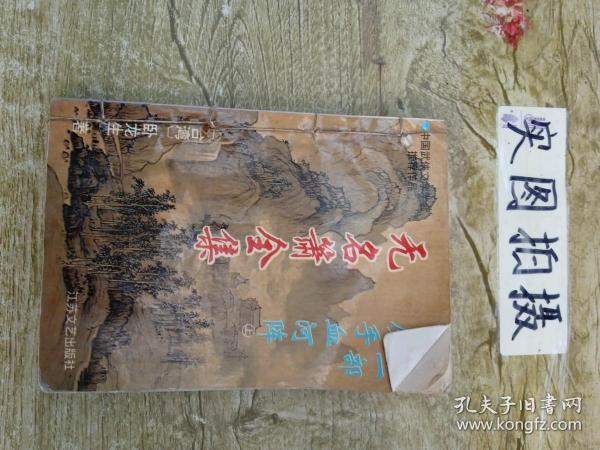 中国武侠文
推荐作品
〔台湾〕卧龙生 著
无名箫全集
一部
手血河阵
江苏文艺出版社
实图拍摄
孔夫子旧书网
www.kongfz.com